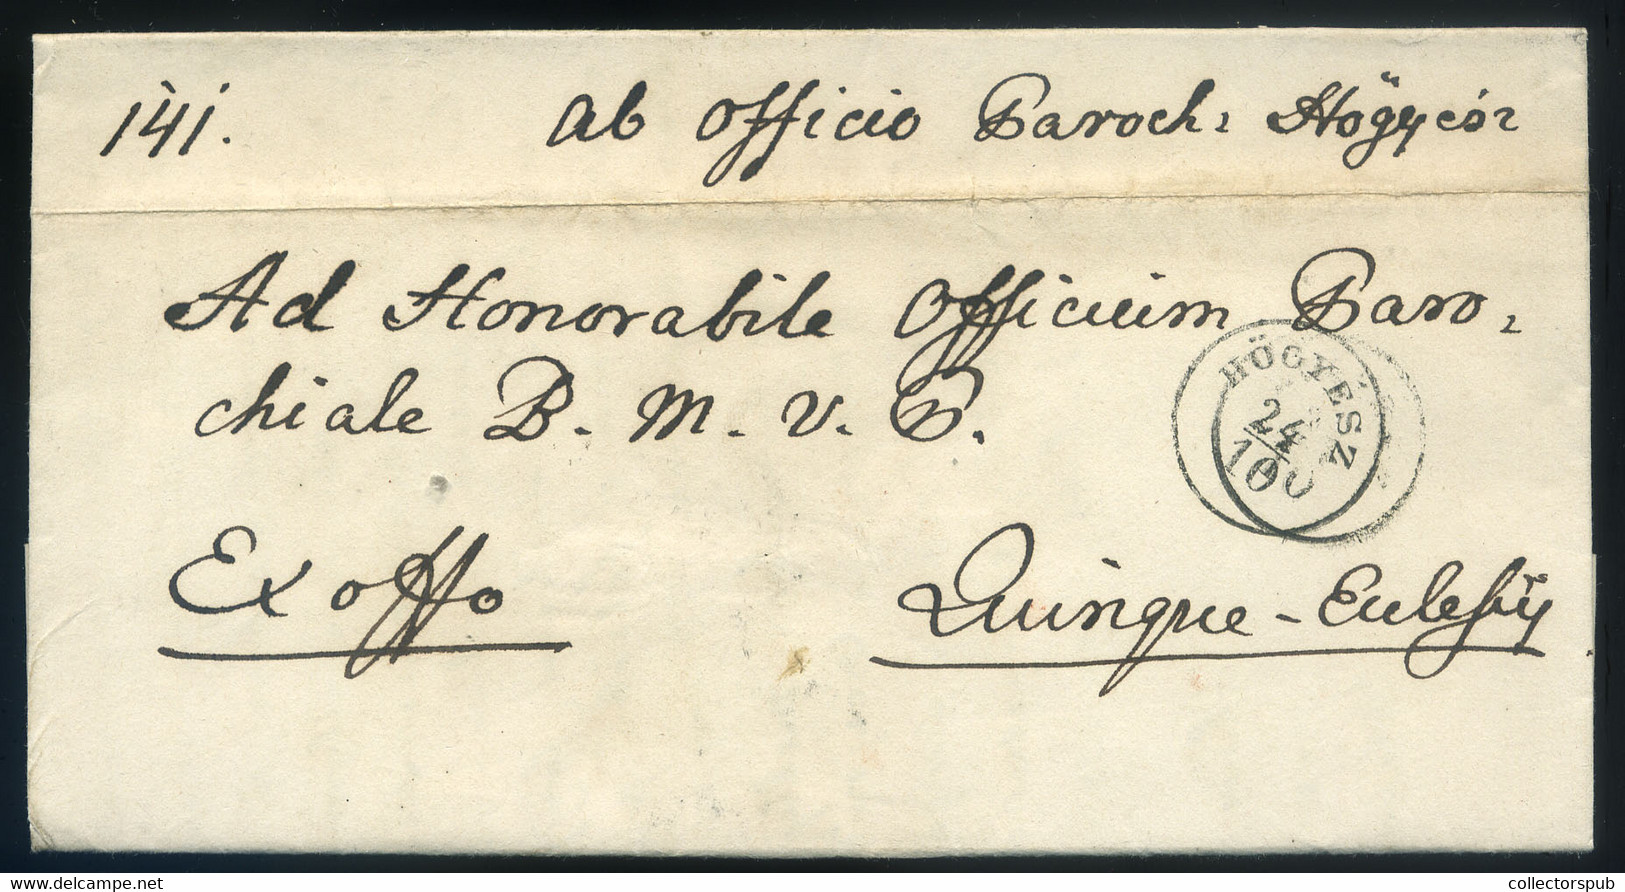 141. Ab Officio Paroch: Högyész
Ad Honorabile Officium Paro-
chiale B. M. V. P.
HÖGYÉSZ
24
10
Ex offo
Quinque-Eclesiis
collectorspub